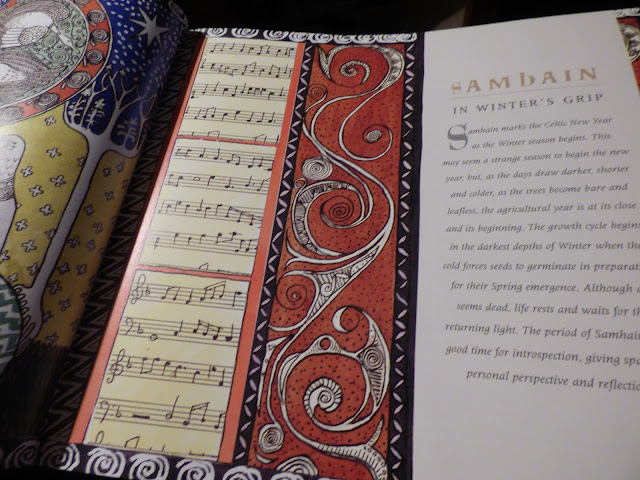 SAMHAIN
IN WINTER'S GRIP
Samhain marks the Celtic New Year
as the Winter season begins. This
may seem a strange season to begin the new
year, but, as the days draw darker, shorter
and colder, as the trees become bare and
leafless, the agricultural year is at its close
and its beginning. The growth cycle begins
in the darkest depths of Winter when the
cold forces seeds to germinate in preparat
for their Spring emergence. Although a
seems dead, life rests and waits for th
returning light. The period of Samhain
good time for introspection, giving spa
personal perspective and reflectio